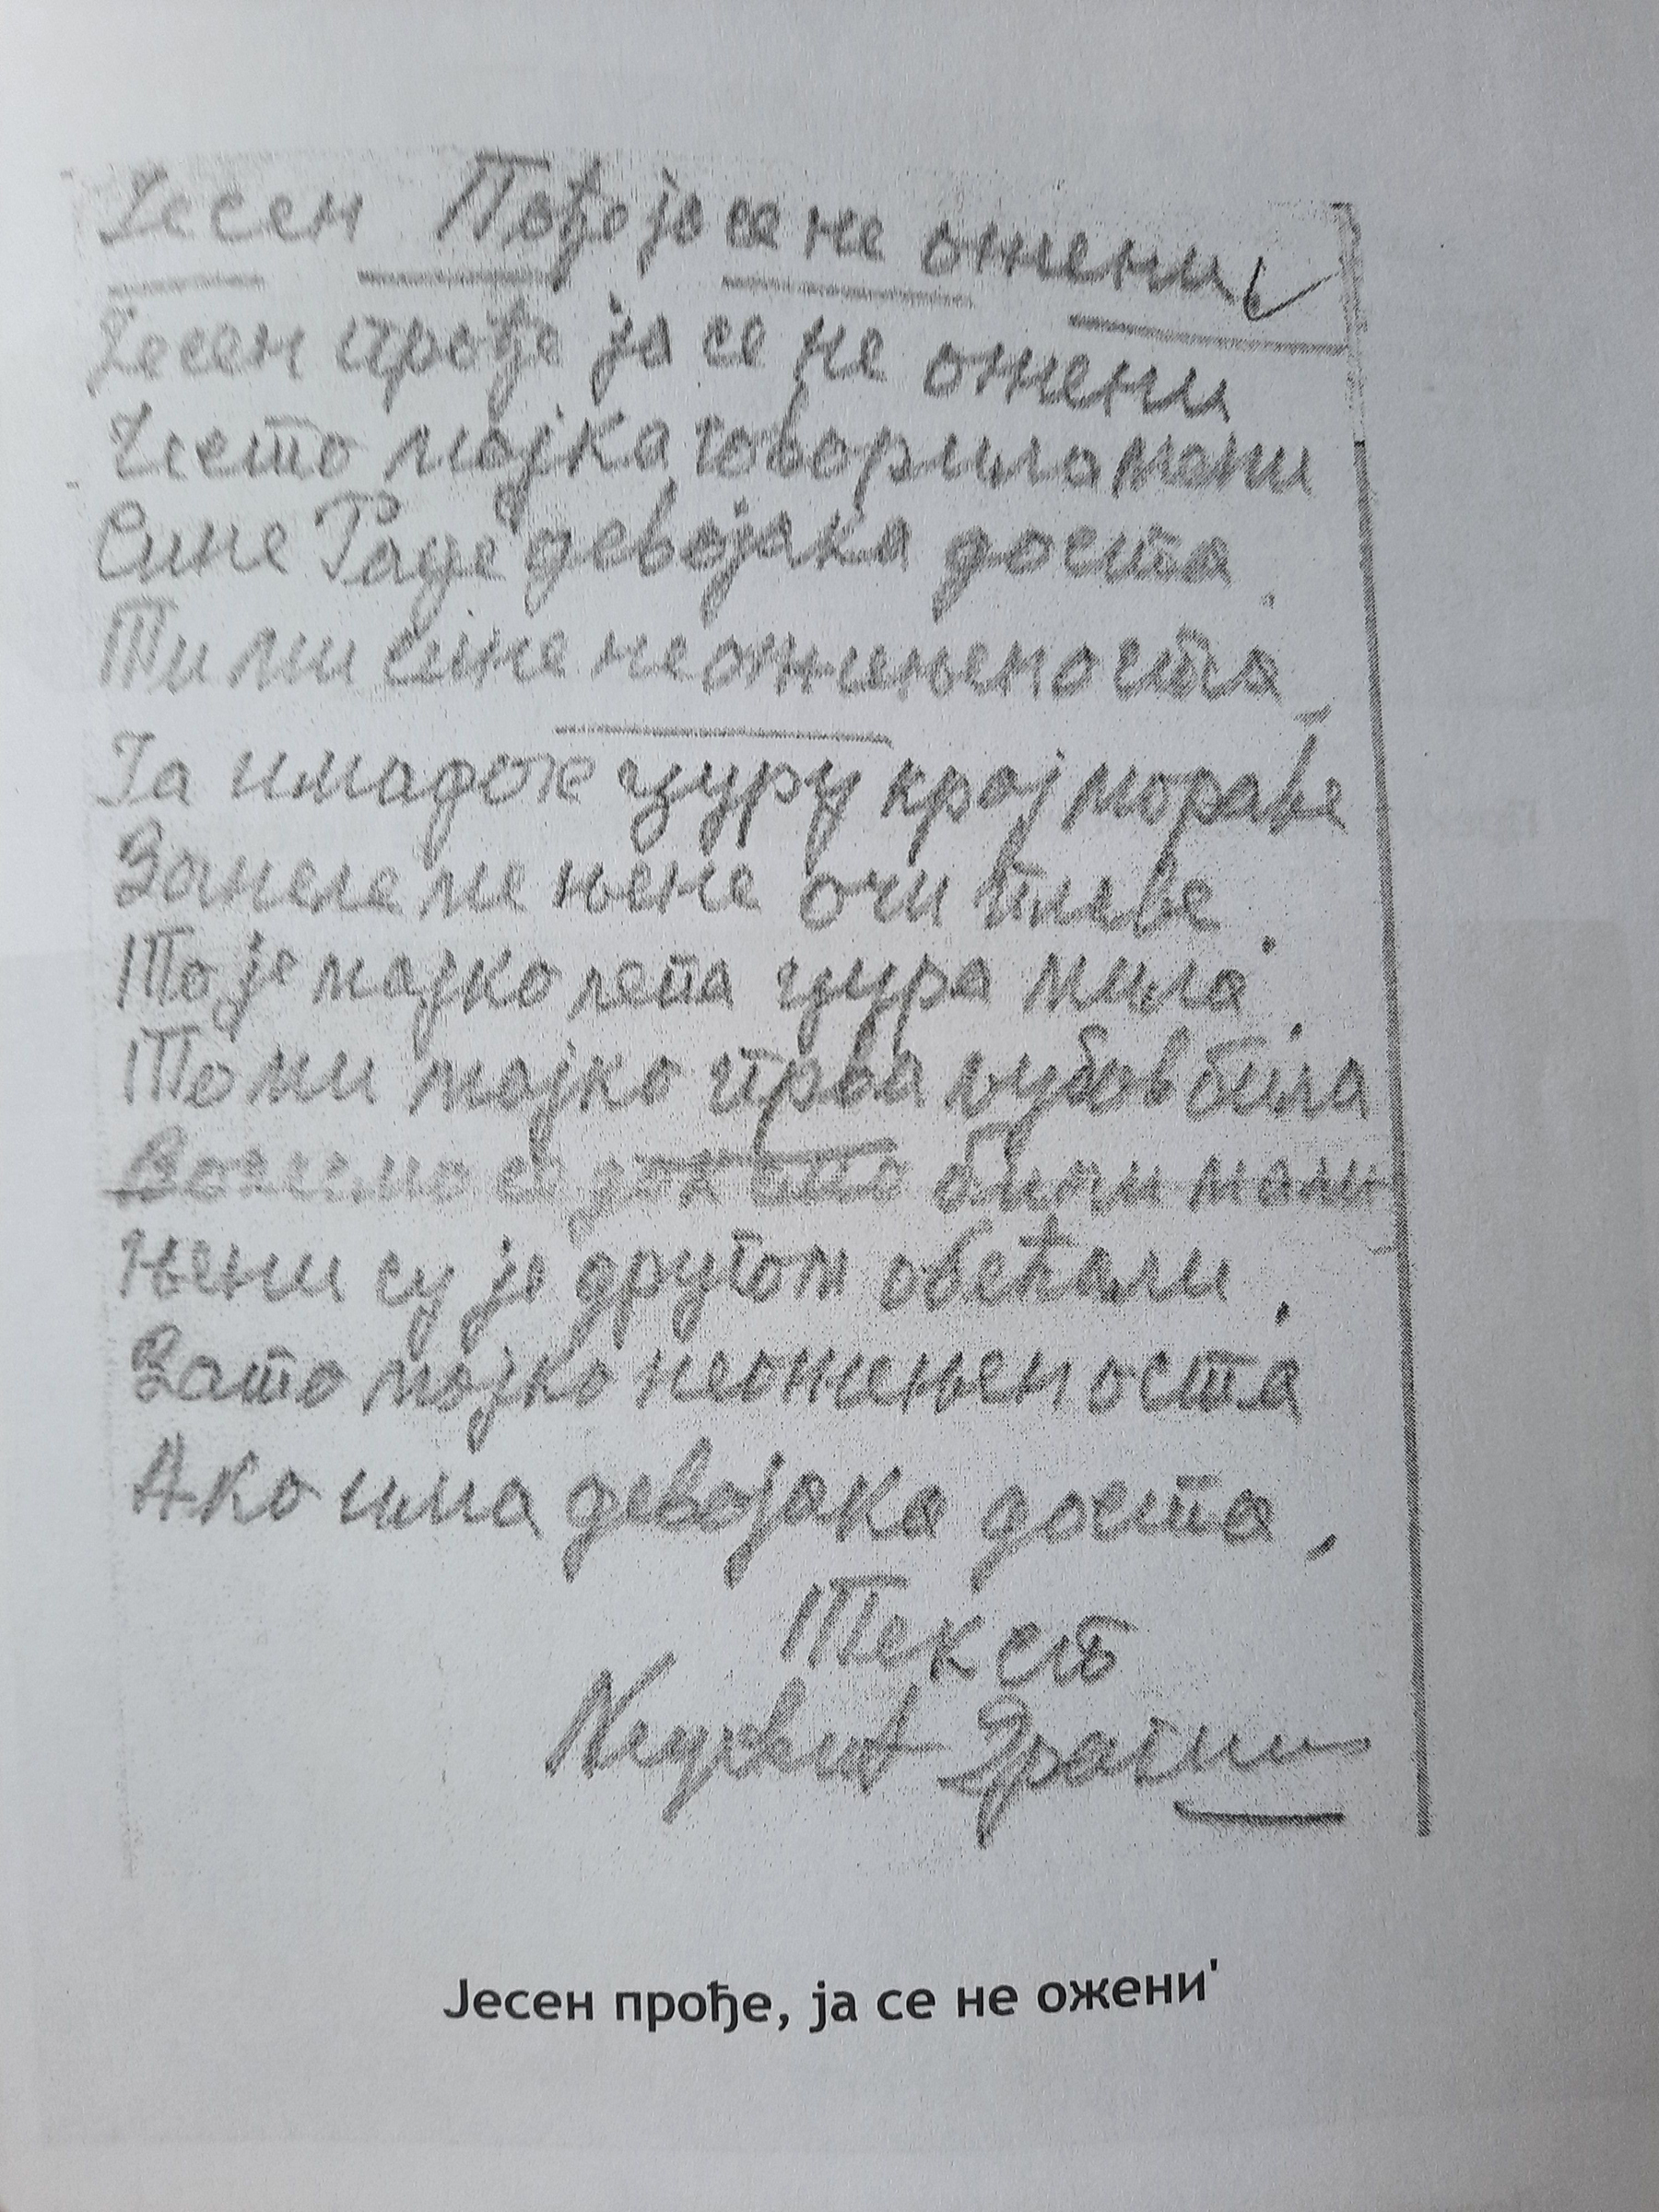 Јесен Пође ја се не ожени
Јесен прође ја се не ожени
Често мајка говорила мени
Сине Раде девојака доста.
Ти ми сине неожењеноста
Ја имадох цуру крај мораве
Занеле ме њене очи плаве.
То је мајко лепа цура мила.
То ми мајко прва љубав била
Волесмо се док смо били мали
Њени су је другом обећали.
Зато мајко неожењен оста
Ако има девојака доста,
Текст
Драгиш
Јесен прође, ја се не ожени'